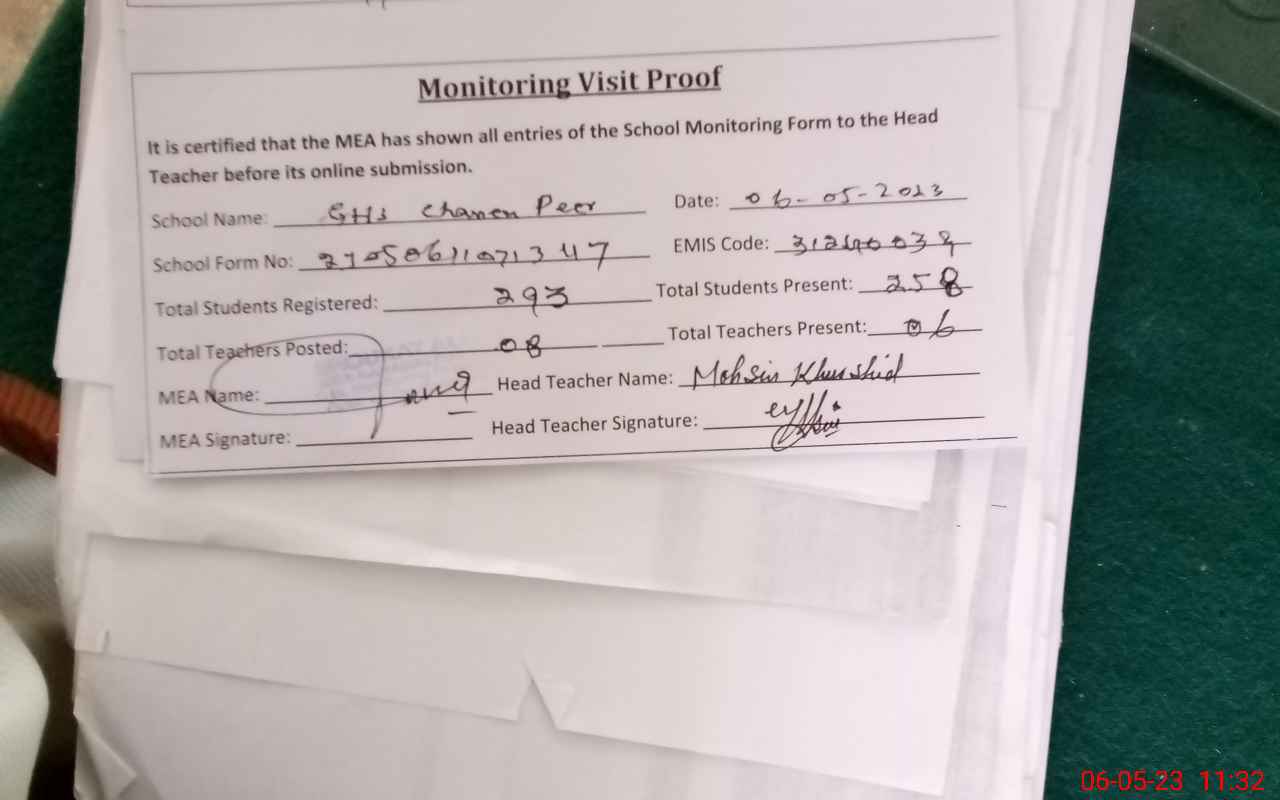 Monitoring Visit Proof
It is certified that the MEA has shown all entries of the School Monitoring Form to the Head
Teacher before its online submission.
School Name: GHS Chanan Peer Date: 06-05-2023
School Form No: EMIS Code:
Total Students Registered: 293 Total Students Present: 258
Total Teachers Posted: 08 Total Teachers Present: 06
MEA Name: Head Teacher Name: Mohsin Khurshid
MEA Signature: Head Teacher Signature:
06-05-23 11:32